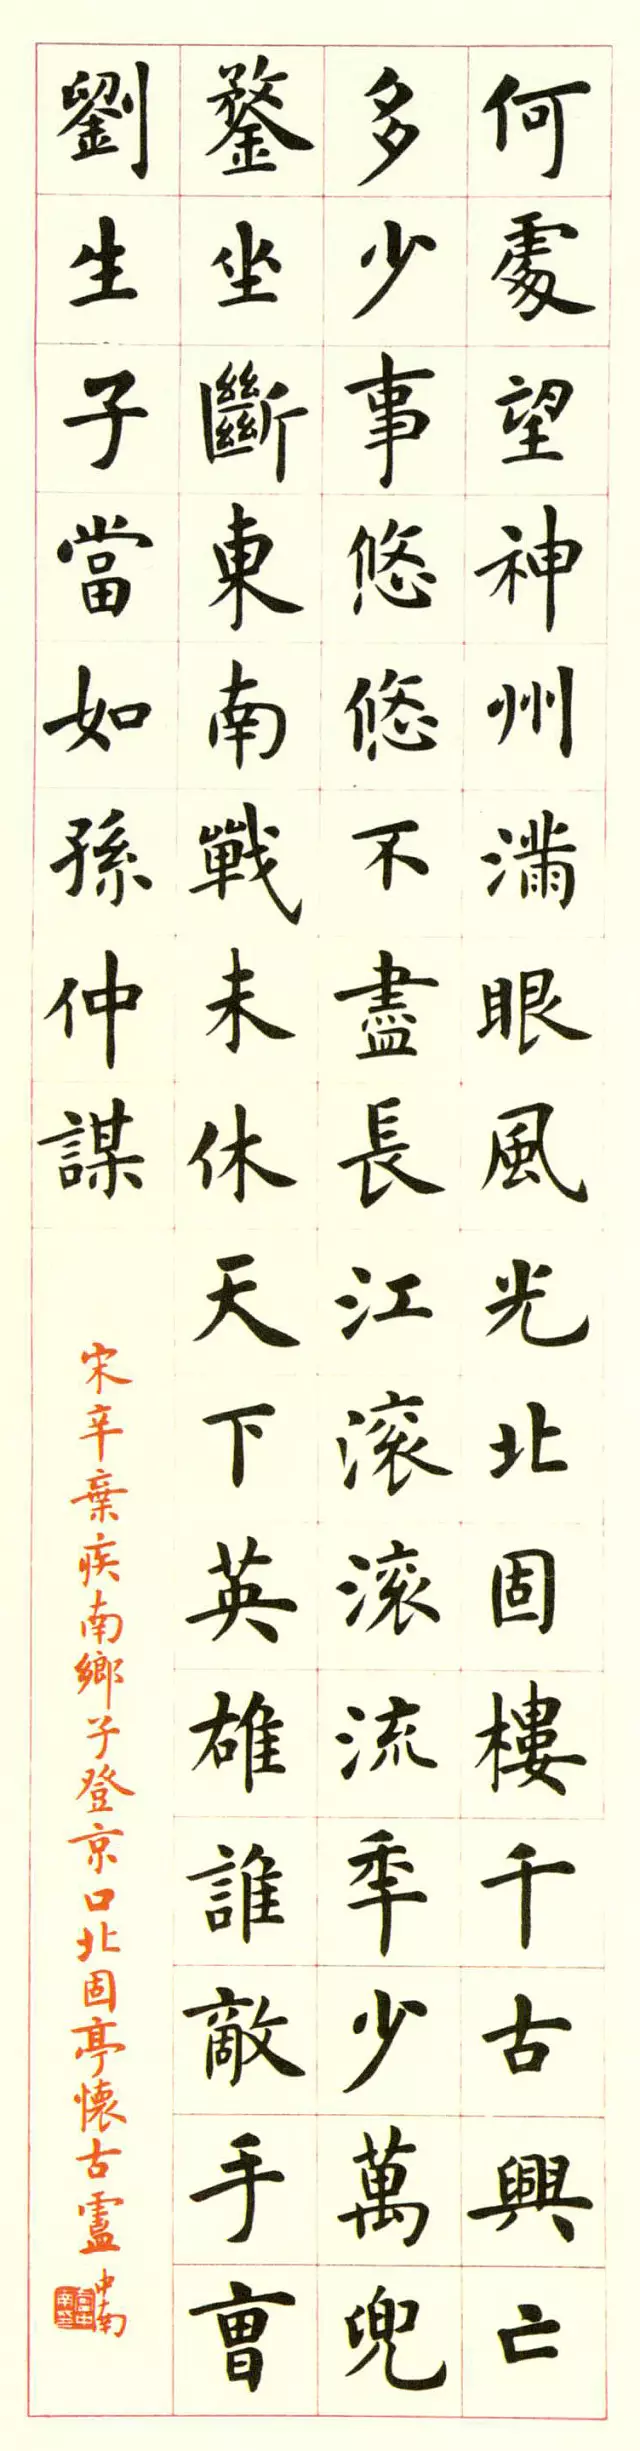 何處望神州滿眼風光北固樓千古興亡
多少事悠悠不盡長江滾滾流年少萬兜
鍪坐斷東南戰未休天下英雄誰敵手曹
劉生子當如孫仲謀
宋辛棄疾南鄉子登京口北固亭懷古盧
中南